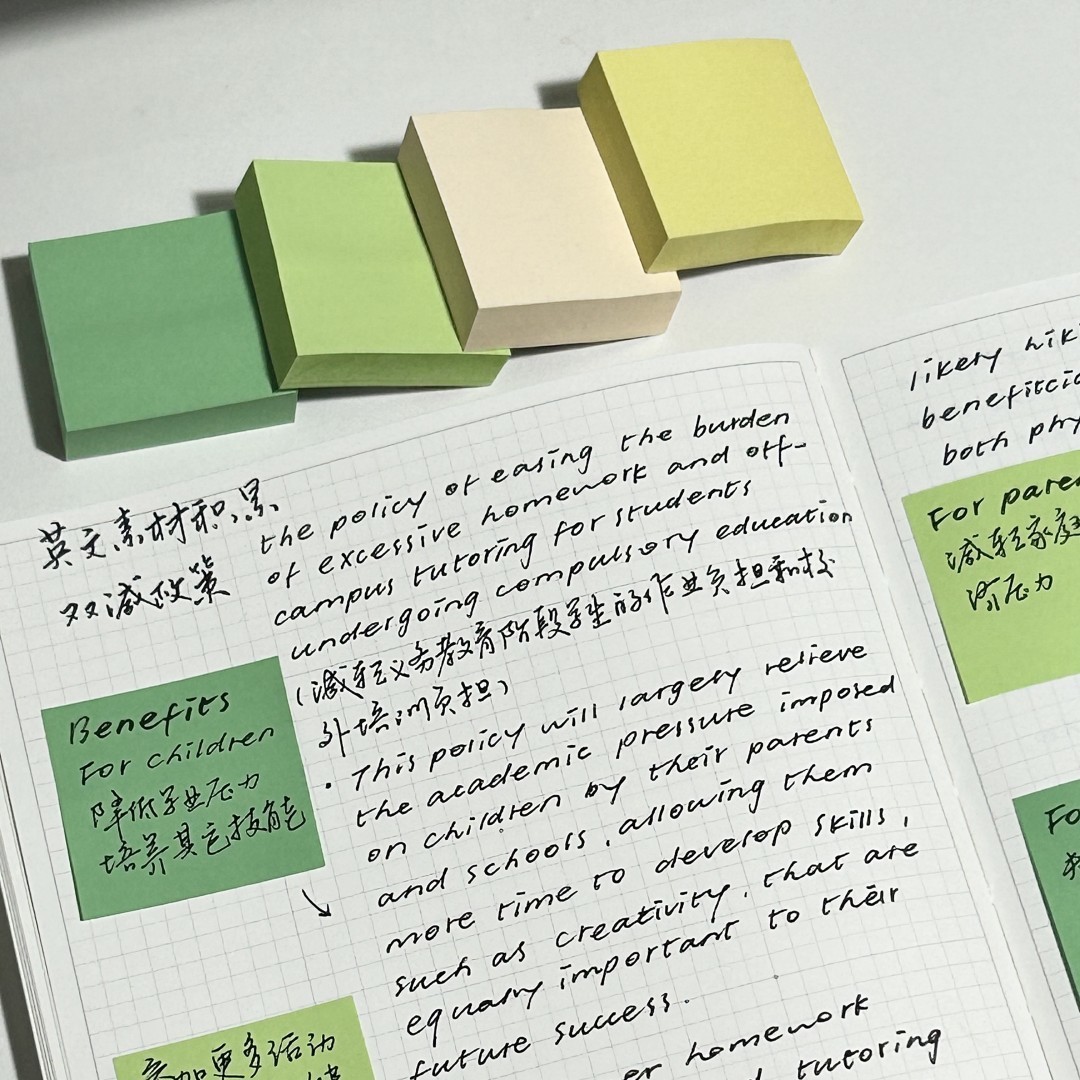 英文素材积累
双减政策
the policy of easing the burden
of excessive homework and off-
campus tutoring for students
undergoing compulsory education
(减轻义务教育阶段学生的作业负担和校
外培训负担)
Benefits
For children
降低学业压力
培养其它技能
· This policy will largely relieve
the academic pressure imposed
on children by their parents
and schools, allowing them
more time to develop skills,
such as creativity, that are
equally important to their
future success.
参加更多活动
er homework
tutoring
likely
benefitci
both phy
For paren
减轻家庭
济压力
Fo